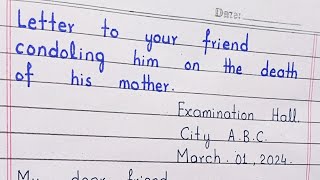 Date:
Letter to your friend
condoling him on the death
of his mother.
Examination Hall.
City A.B.C.
March. 01, 2024.
My dear friend